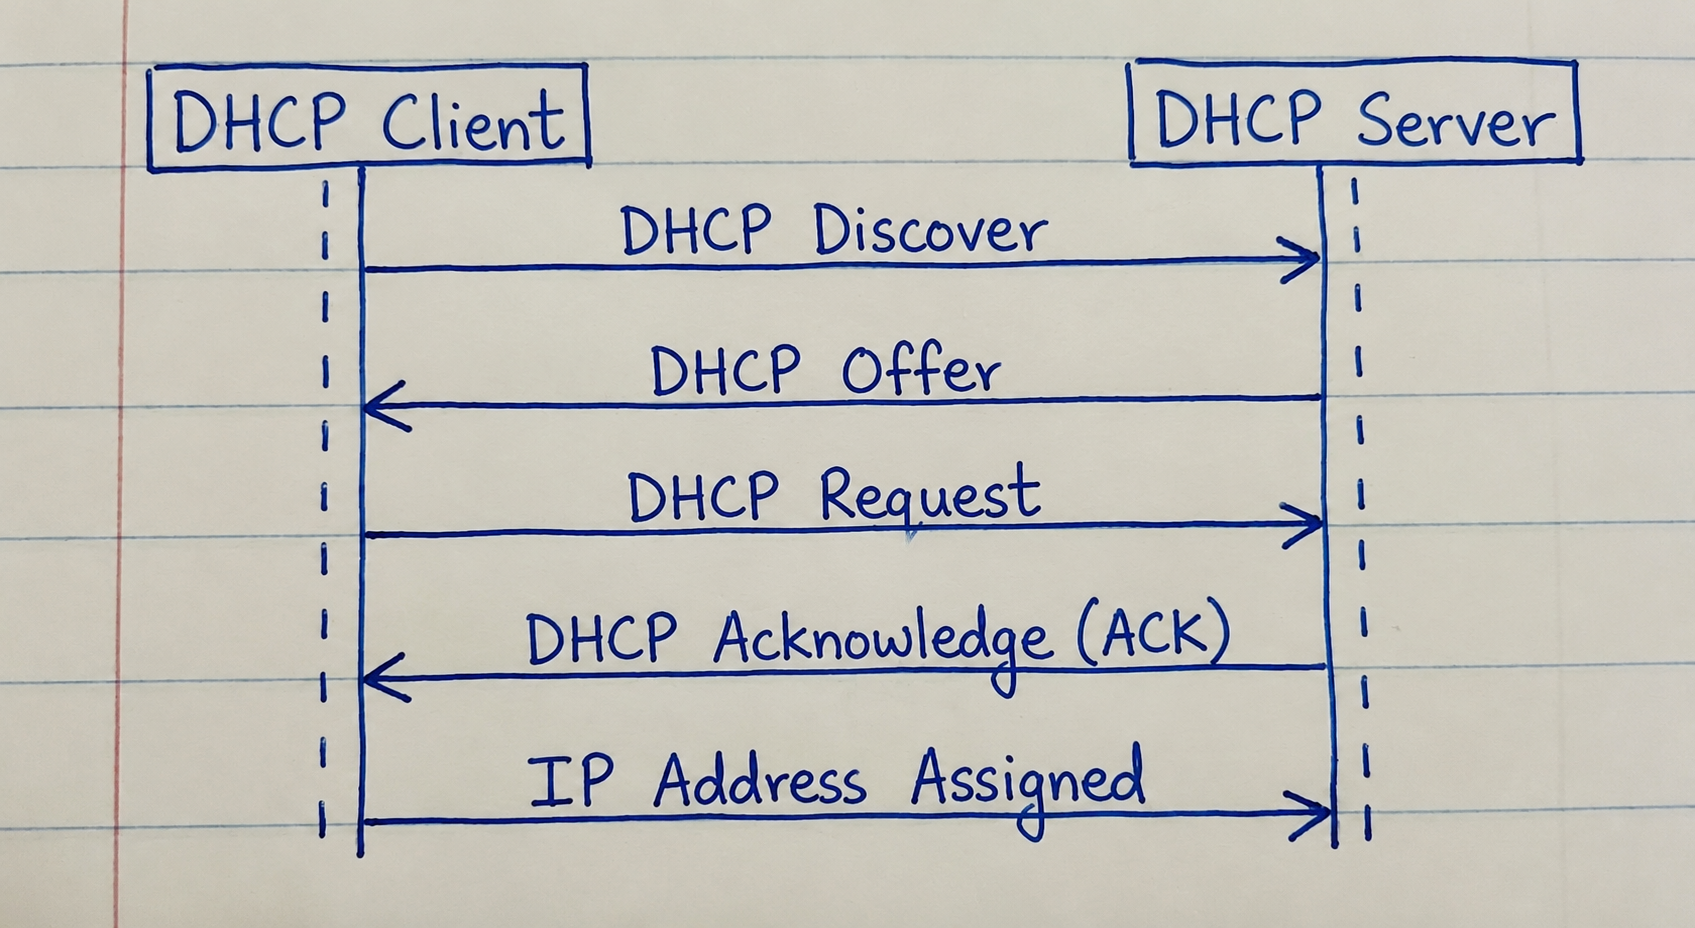 DHCP Client
DHCP Server
DHCP Discover
DHCP Offer
DHCP Request
DHCP Acknowledge (ACK)
IP Address Assigned